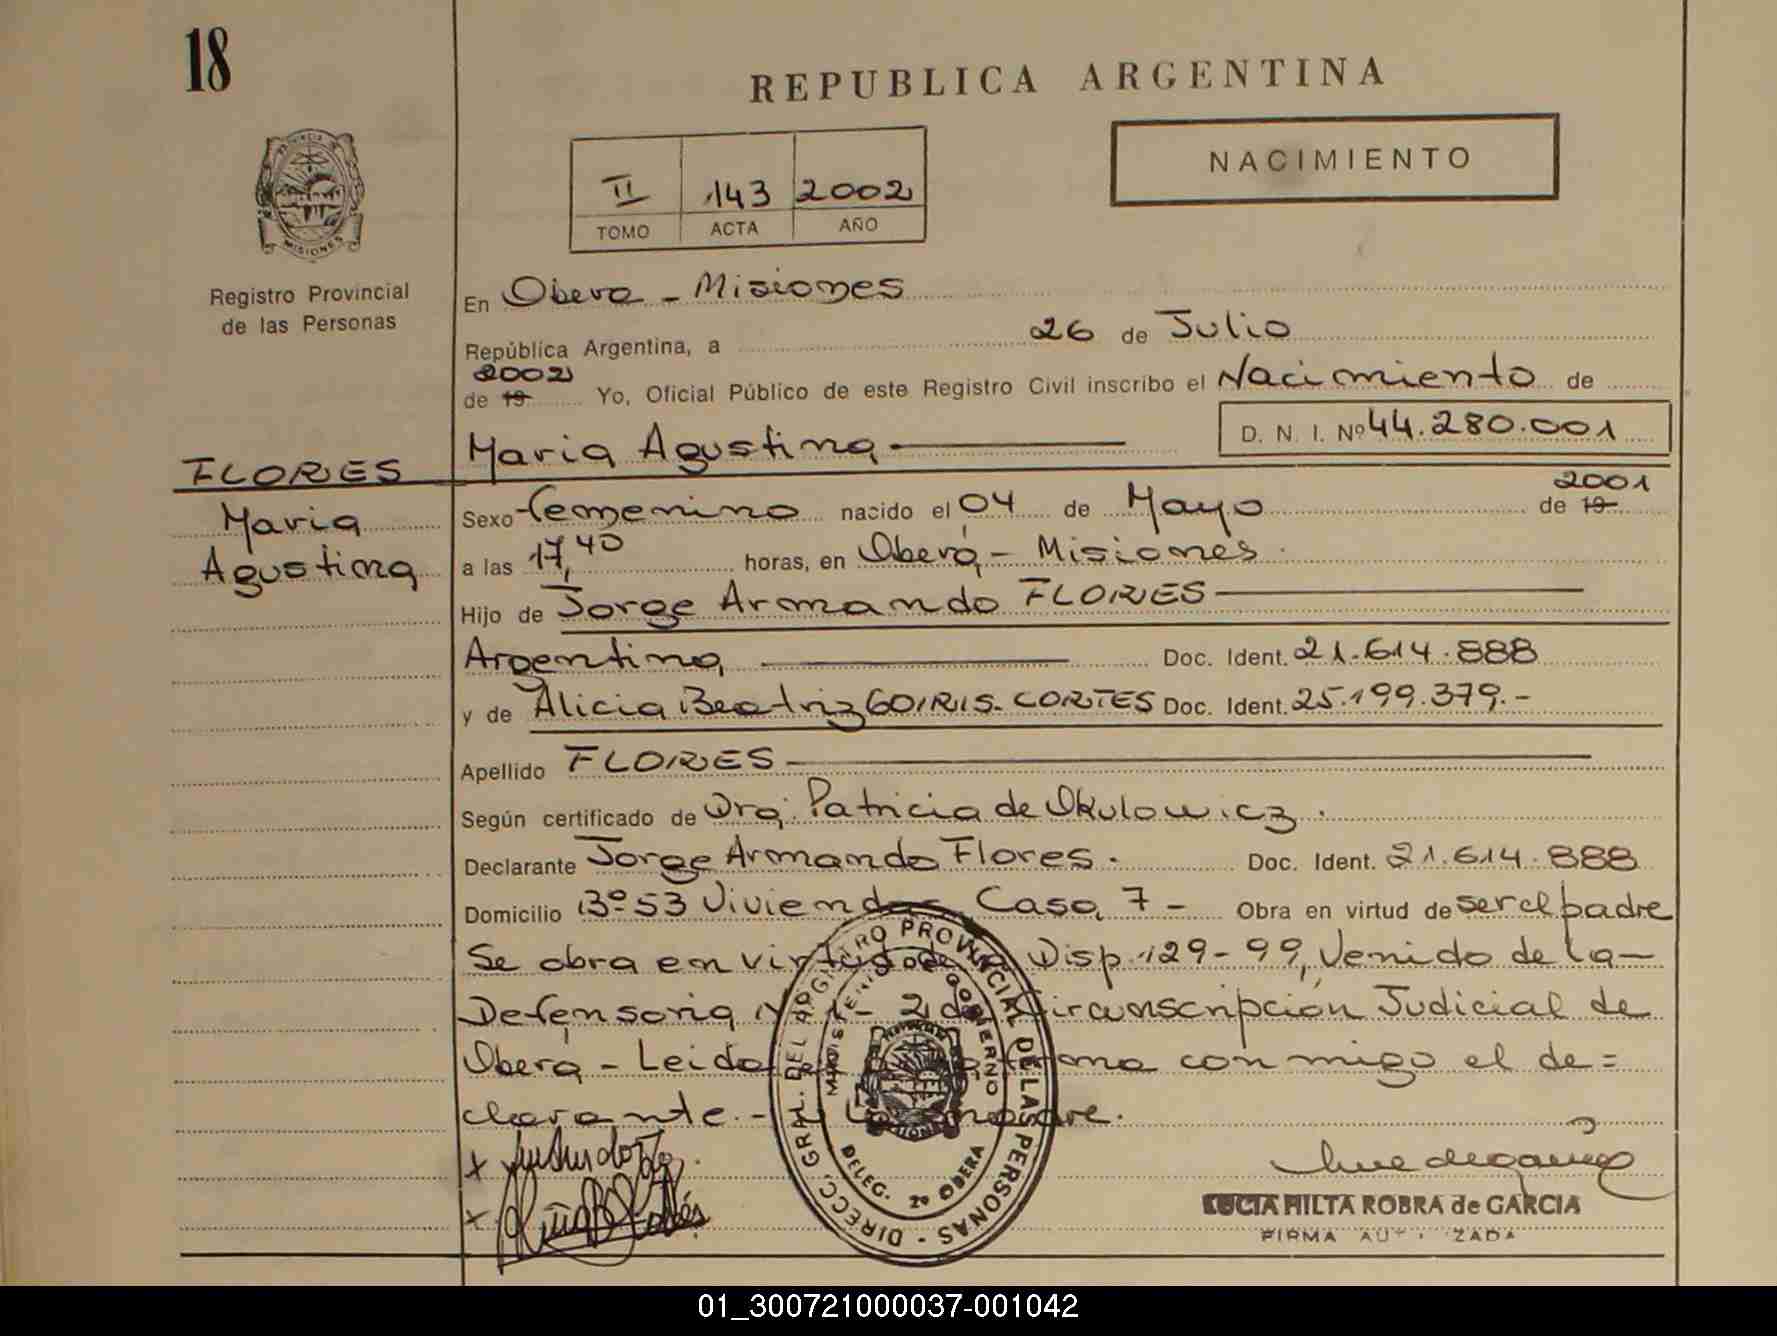 18
REPUBLICA ARGENTINA
NACIMIENTO
II 143 2002
TOMO ACTA AÑO
PROVINCIA DE
MISIONES
Registro Provincial
de las Personas
En Obera - Misiones
República Argentina, a 26 de Julio
2002
de 19 Yo, Oficial Público de este Registro Civil inscribo el Nacimiento de
D. N. I. Nº 44.280.001
Maria Agustina
FLORES
Maria
Agustina
2001
Sexo femenino nacido el 04 de Mayo de 19
a las 17,40 horas, en Oberá - Misiones.
Hijo de Jorge Armando FLORES
Argentina Doc. Ident. 21.614.888
y de Alicia Beatriz GOIRIS - CORTES Doc. Ident. 25.199.379.-
Apellido FLORES
Según certificado de Dra. Patricia de Okulowicz.
Declarante Jorge Armando Flores. Doc. Ident. 21.614.888
Domicilio Bº 53 Viviendas Casa 7 - Obra en virtud de ser el padre
Se obra en virtud de la Disp. 129-99, Venido de la -
Defensoria Nº 1 - 2da Circunscripción Judicial de
Oberá - Leido firma conmigo el de=
clarante. - y la madre.
x
x
DIRECC. GRAL. DEL REGISTRO PROVINCIAL DE LAS PERSONAS -
MINISTERIO DE GOBIERNO
DELEG. 2º OBERA
LUCIA HILTA ROBRA de GARCIA
FIRMA AUTORIZADA
01_300721000037-001042